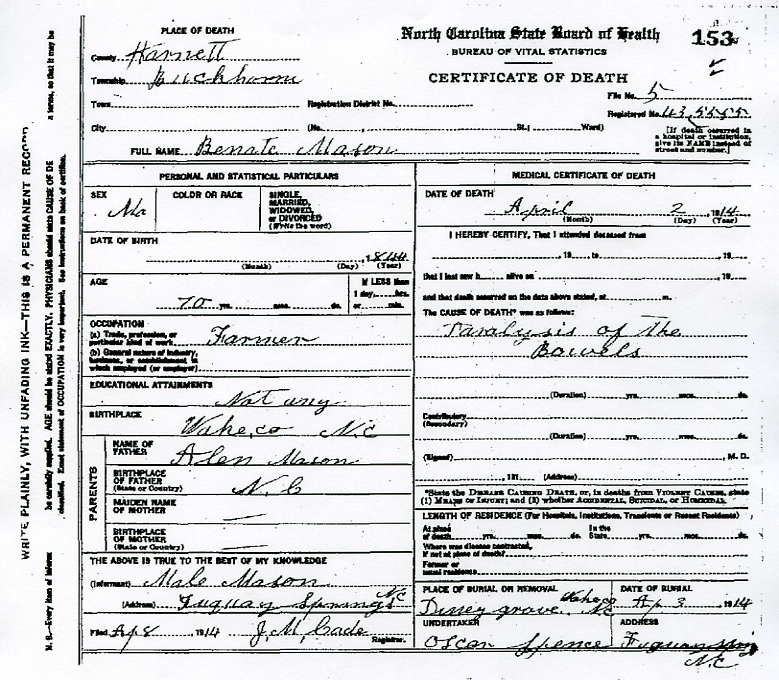 PLACE OF DEATH
County Harnett
Township Buckhorn
Town
Registration District No.
City
(No.
St.;
Ward)
FULL NAME Benate Mason
North Carolina State Board of Health
BUREAU OF VITAL STATISTICS
CERTIFICATE OF DEATH
153
File No. 5
Registered No.
[If death occurred in
a hospital or institution,
give its NAME instead of
street and number.]
PERSONAL AND STATISTICAL PARTICULARS
SEX Ma
COLOR OR RACE
SINGLE,
MARRIED,
WIDOWED,
or DIVORCED
(Write the word)
DATE OF BIRTH
, 1844
(Month) (Day) (Year)
AGE
70 yrs. mos. ds.
If LESS than
1 day, hrs.
or min.
OCCUPATION
(a) Trade, profession, or
particular kind of work Farmer
(b) General nature of industry,
business, or establishment in
which employed (or employer)
EDUCATIONAL ATTAINMENTS
Not any
BIRTHPLACE
Wake, co N.C
PARENTS
NAME OF
FATHER Alen Mason
BIRTHPLACE
OF FATHER
(State or Country) N.C
MAIDEN NAME
OF MOTHER —
BIRTHPLACE
OF MOTHER
(State or Country) —
THE ABOVE IS TRUE TO THE BEST OF MY KNOWLEDGE
(Informant) Mason
(Address) Fuquay Springs NC
Filed Ap 8 1914 J. M. Cade
Registrar.
MEDICAL CERTIFICATE OF DEATH
DATE OF DEATH
April 2, 1914
(Month) (Day) (Year)
I HEREBY CERTIFY, That I attended deceased from
, 19 to , 19
that I last saw h alive on , 19
and that death occurred on the date above stated, at m.
The CAUSE OF DEATH* was as follows:
Paralysis of The
Bowels
(Duration) yrs. mos. ds.
Contributory
(Secondary)
(Duration) yrs. mos. ds.
(Signed) M. D.
, 191 (Address)
*State the DISEASE CAUSING DEATH, or, in deaths from VIOLENT CAUSES, state
(1) MEANS OF INJURY; and (2) whether ACCIDENTAL, SUICIDAL, or HOMICIDAL
LENGTH OF RESIDENCE (For Hospitals, Institutions, Transients or Recent Residents)
At place
of death yrs. mos. ds.
In the
State yrs. mos. ds.
Where was disease contracted,
if not at place of death?
Former or
usual residence
PLACE OF BURIAL OR REMOVAL
grove Wake co NC
DATE OF BURIAL
Ap 3, 1914
UNDERTAKER
Oscar Spence
ADDRESS
NC
WRITE PLAINLY, WITH UNFADING INK—THIS IS A PERMANENT RECORD
N. B.—Every item of
be carefully supplied. AGE should be stated EXACTLY. PHYSICIANS should state CAUSE OF DE
a terms, so that it may be
classified. Exact statement of OCCUPATION is very important. See instructions on back of certificate.